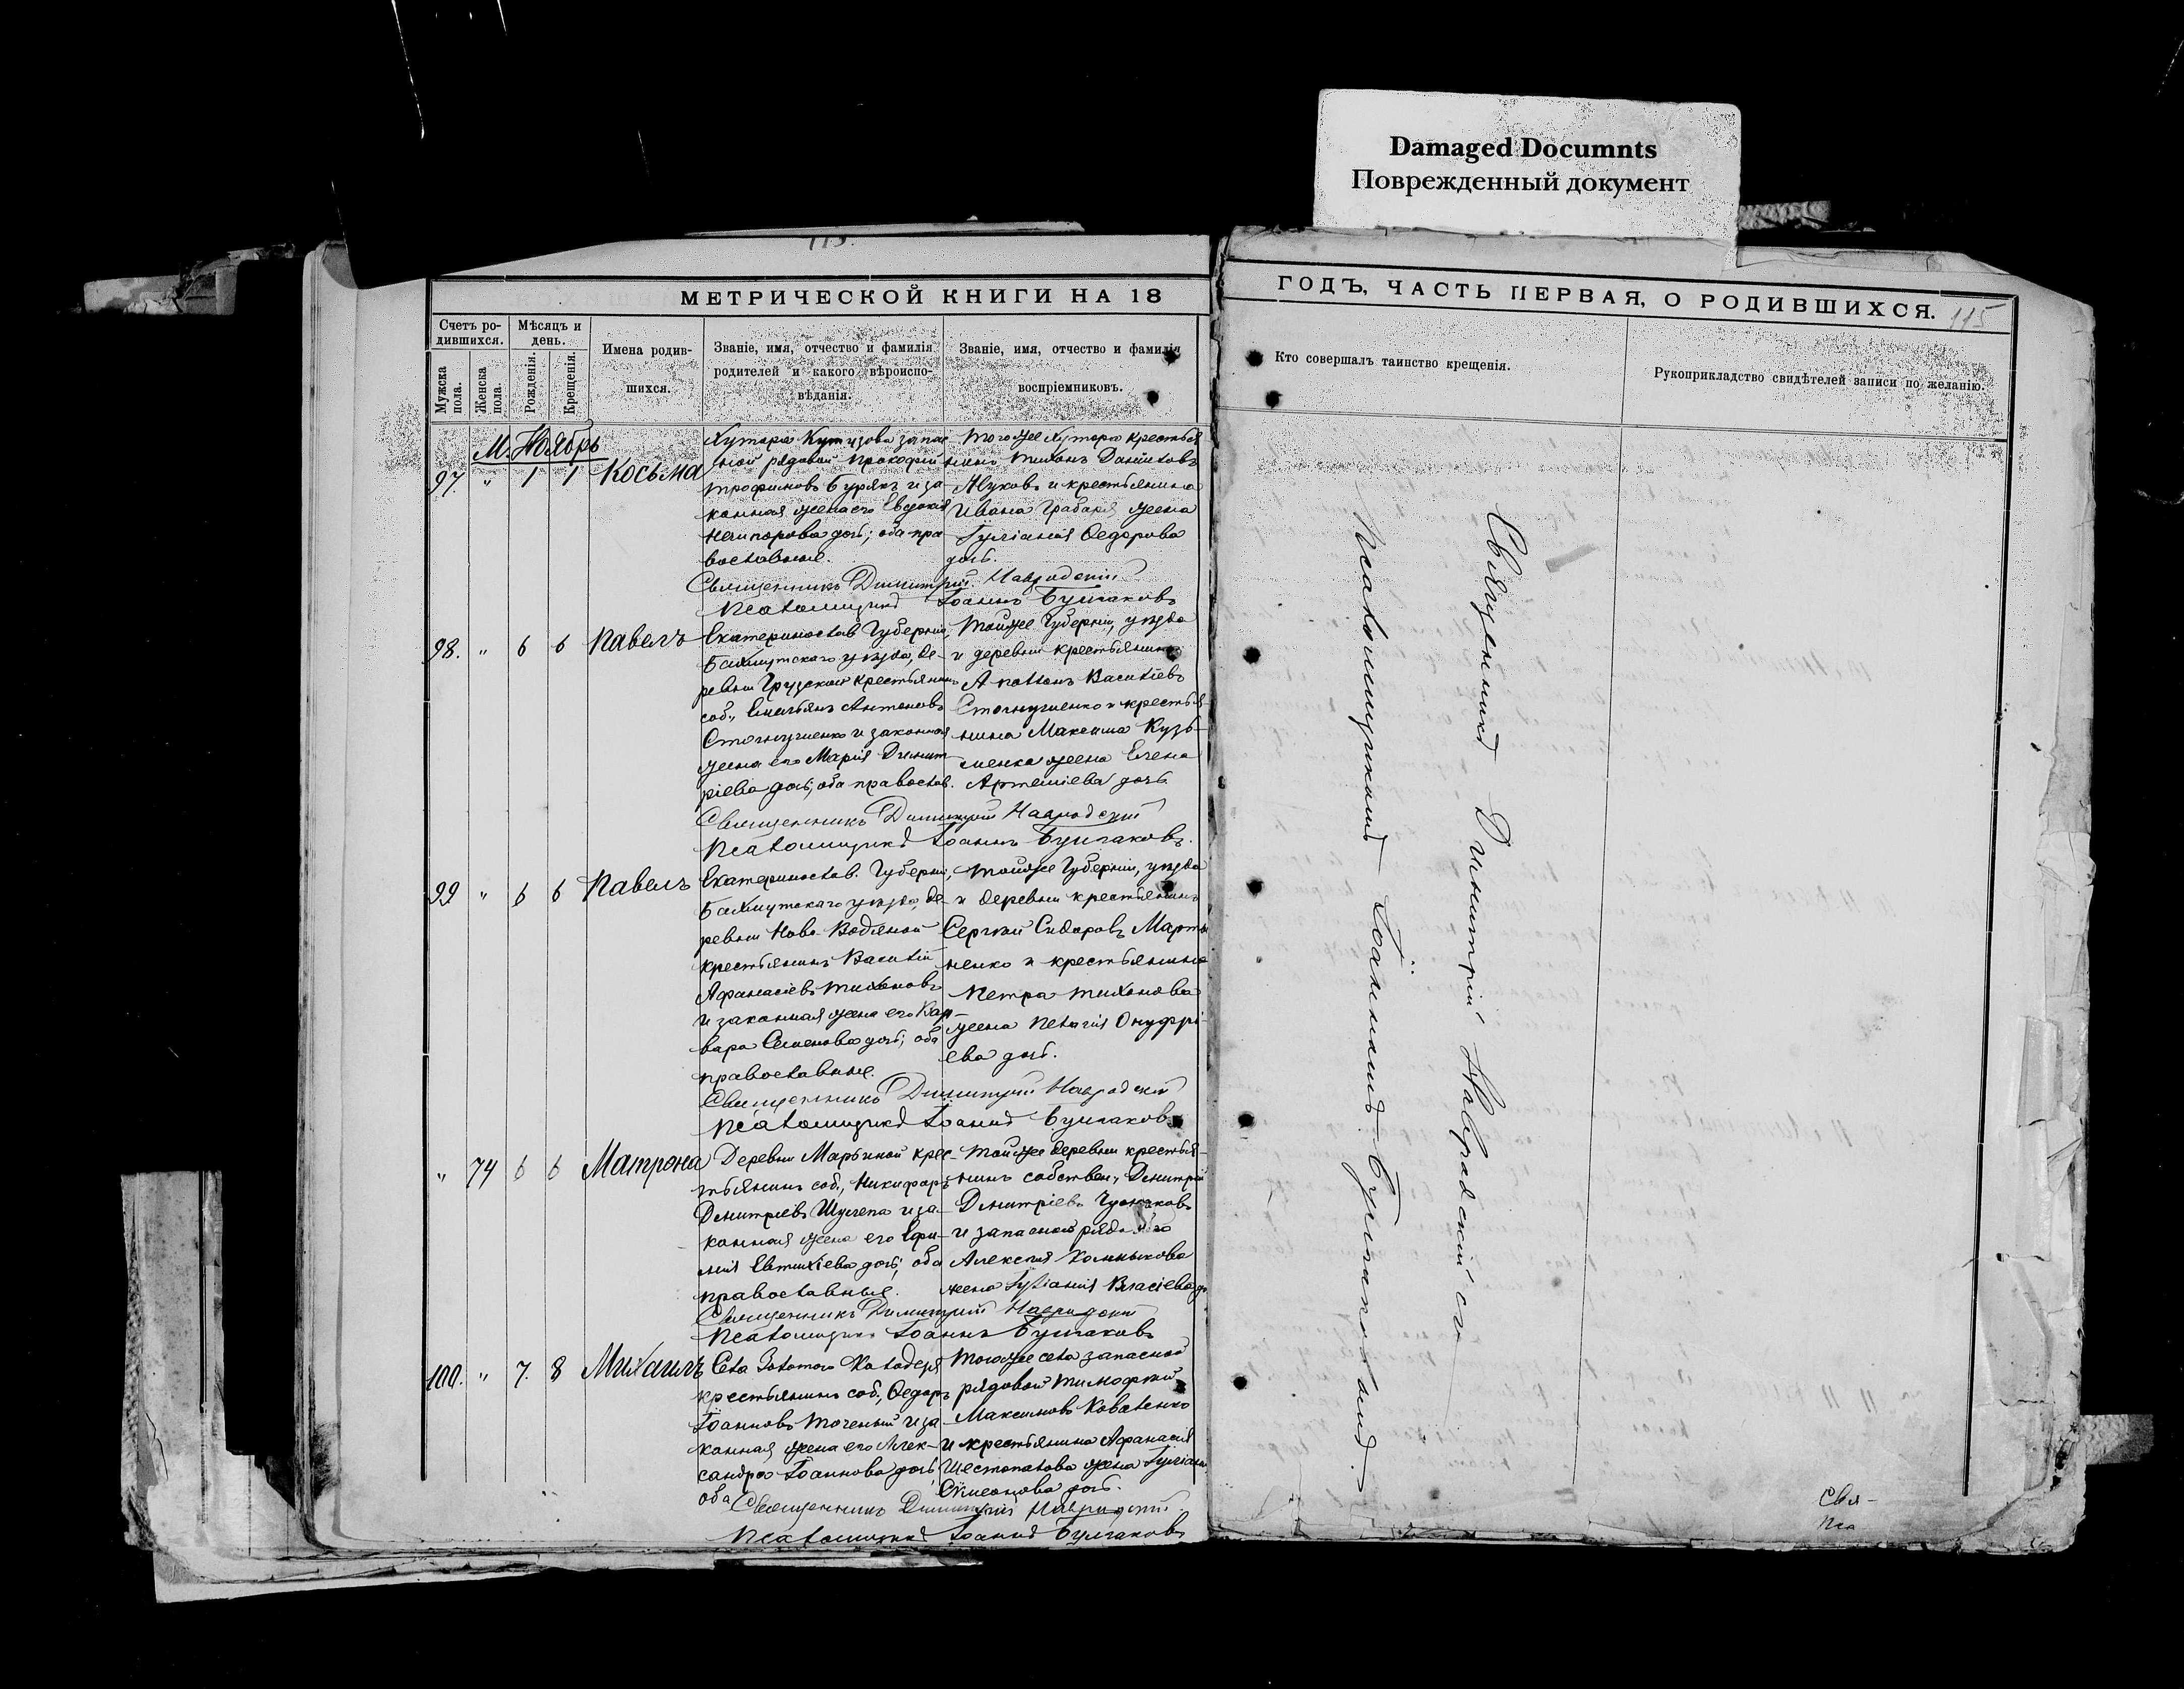 Damaged Documnts
Поврежденный документ
115.
МЕТРИЧЕСКОЙ КНИГИ НА 18
ГОДЪ, ЧАСТЬ ПЕРВАЯ, О РОДИВШИХСЯ.
115
Счетъ ро-
дившихся.
Мужска
пола.
Женска
пола.
Мѣсяцъ и
день.
Рожденія.
Крещенія.
Имена родив-
шихся.
Званіе, имя, отчество и фамилія
родителей и какого вѣроиспо-
вѣданія.
Званіе, имя, отчество и фамилія
воспріемниковъ.
Кто совершалъ таинство крещенія.
Рукоприкладство свидѣтелей записи по желанію.
М. Ноябрь
97. " 1 1 Косьма
Хутора Кутузова запас
ной рядовой Прокофій
Трофимовъ Бурякъ и за-
конная жена его Евдокія
Нечипорова дочь; оба пра-
вославные.
Тогоже хутора крестья
нинъ Тихонъ Даниловъ
и крестьянина
Ивана Грабаря жена
Іуліанія Ѳедорова
дочь.
Священникъ Димитрій Навродскій
Псаломщикъ Іоаннъ Булгаковъ
98. " 6 6 Павелъ
Екатеринослав. Губерніи,
Бахмутскаго уѣзда, де-
ревни Грузской крестьянинъ
соб., Емельянъ Антоновъ
и законная
жена его Марія Димит
ріева дочь, оба православ.
Тойже Губерніи, уѣзда
и деревни крестьянинъ
Аполлонъ Василіевъ
и крестья-
нина Максима Кузь-
менка жена Елена
Артеміева дочь
Священникъ Димитрій Навродскій
Псаломщикъ Іоаннъ Булгаковъ.
99 " 6 6 Павелъ
Екатеринослав. Губерніи,
Бахмутскаго уѣзда, де-
ревни Ново-Водяной
крестьянинъ Василій
Афанасіевъ Тихоновъ
и законная жена его Вар-
вара Семенова дочь; оба
православные.
Тойже Губерніи, уѣзда
и деревни крестьянинъ
Сергѣй Сидоровъ Марты
ненко и крестьянина
Петра Тихонова
жена Пелагія Онуфрі-
ева дочь.
Священникъ Димитрій Навродскій
Псаломщикъ Іоаннъ Булгаковъ
" 74 6 6 Матрона
Деревни Марьиной крес-
тьянинъ соб., Никифоръ
Димитріевъ Шулепа и за-
конная жена его Ефи-
мія Евтихіева дочь; оба
православные.
Тойже деревни крестья-
нинъ собствен., Димитрій
Димитріевъ
и запаснаго рядового
Алексѣя
жена Іуліанія Власіева до
Священникъ Димитрій Навродскій
Псаломщикъ Іоаннъ Булгаковъ
100. " 7. 8 Михаилъ
Села Золотого Колодезя
крестьянинъ соб., Ѳедоръ
Іоанновъ Точеный и за-
конная жена его Алек-
сандра Іоаннова дочь,
оба
Тогоже села запасной
рядовой Тимофѣй
Максимовъ Коваленко
и крестьянина Афанасія
Шестопалова жена Іуліан.
Симеонова дочь.
Священникъ Димитрій Навродскій
Псаломщикъ Іоаннъ Булгаковъ
Священникъ Димитрій Навродскій съ
Псаломщикомъ Іоанномъ Булгаковымъ.
Свя-
Пса